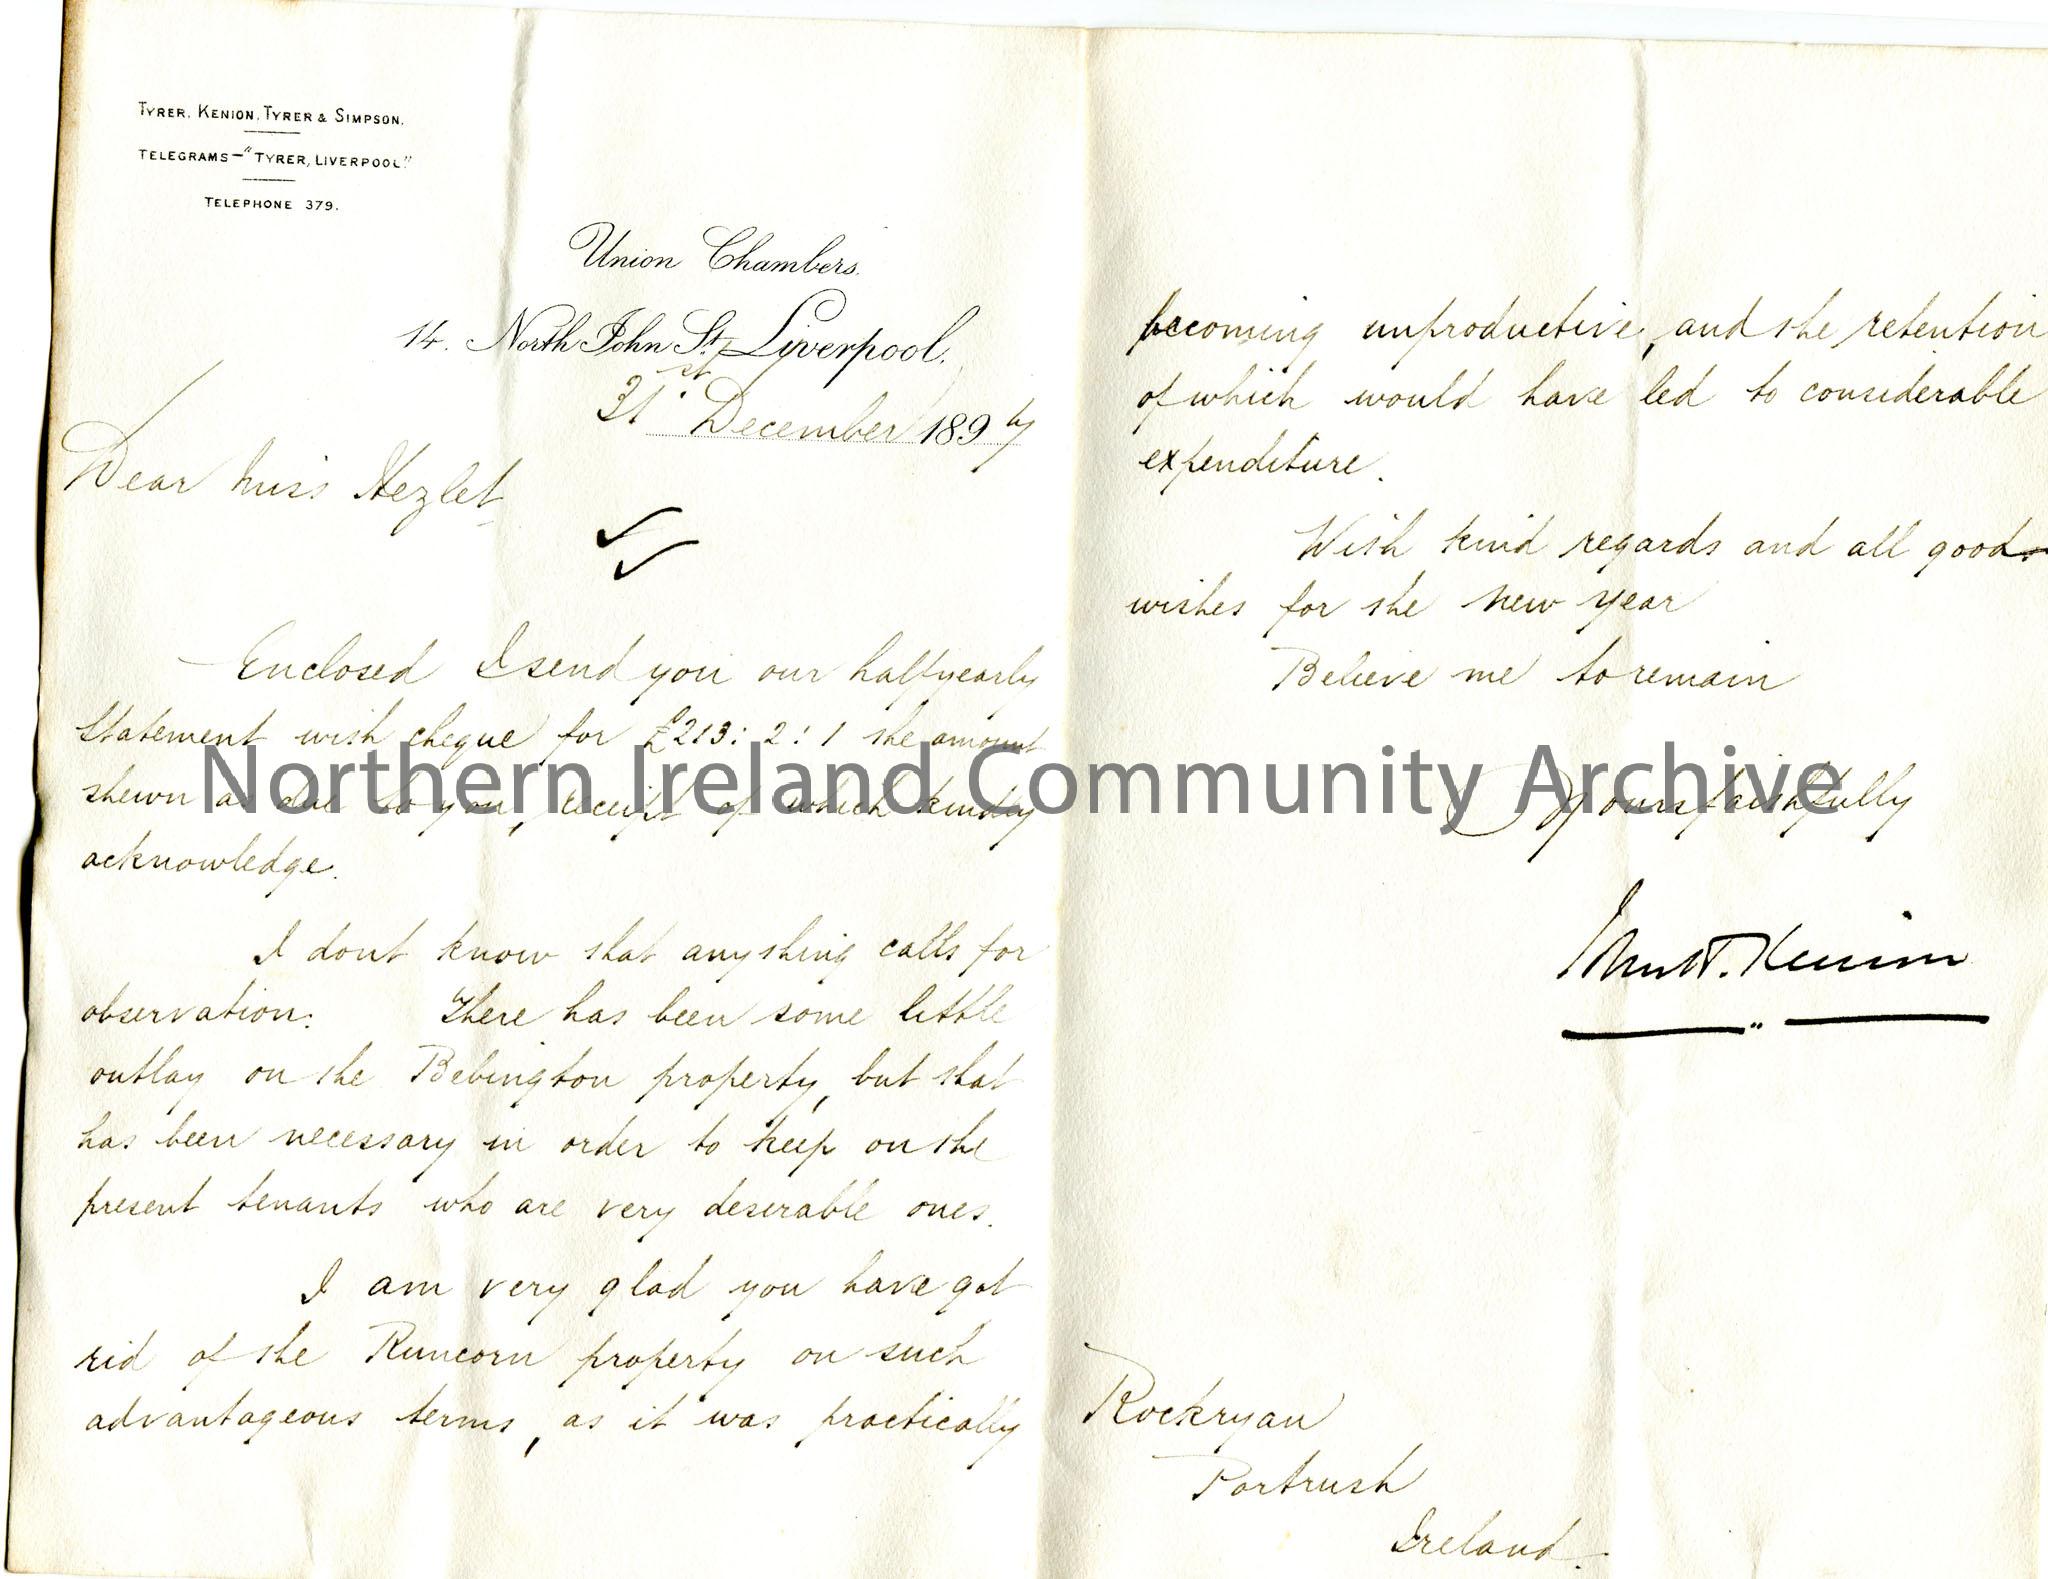 TYRER, KENION, TYRER & SIMPSON.
TELEGRAMS—"TYRER, LIVERPOOL."
TELEPHONE 379.
Union Chambers.
14. North John St. Liverpool.
31st December 1897
Dear Miss Hezlet,
Enclosed I send you our halfyearly
statement with cheque for £213: 2: 1 the amount
shewn as due to you, receipt of which kindly
acknowledge.
I dont know that anything calls for
observation. There has been some little
outlay on the Bebington property, but that
has been necessary in order to keep on the
present tenants who are very deserable ones.
I am very glad you have got
rid of the Runcorn property on such
advantageous terms, as it was practically
becoming unproductive, and the retention
of which would have led to considerable
expenditure.
With kind regards and all good
wishes for the New Year
Believe me to remain
Yours faithfully
Kenion
Rockryan
Portrush
Ireland.
Northern Ireland Community Archive